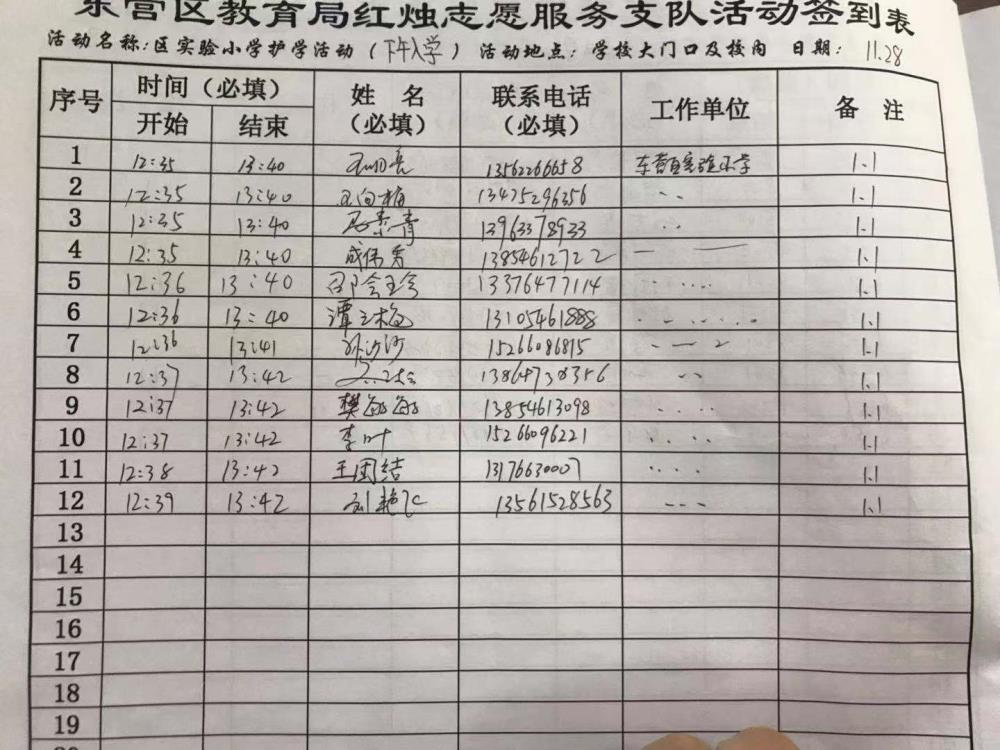 东营区教育局红烛志愿服务支队活动签到表
活动名称:区实验小学护学活动（下午入学） 活动地点：学校大门口及校内 日期：11.28
序号 时间（必填） 姓名（必填） 联系电话（必填） 工作单位 备注
开始 结束
1 12:35 13:40 13562266658 东营区实验小学 1.1
2 12:35 13:40 13475296356 1.1
3 12:35 13:40 13963378933 1.1
4 12:35 13:40 成伟男 13854612722 1.1
5 12:36 13:40 13376477114 1.1
6 12:36 13:40 谭立梅 13105461888 1.1
7 12:36 13:41 孙沙沙 15266086815 1.1
8 12:37 13:42 1.1
9 12:37 13:42 樊敏敏 13854613098 1.1
10 12:37 13:42 李叶 15266096221 1.1
11 12:38 13:42 王团结 13176630007 1.1
12 12:39 13:42 刘艳飞 13561528563 1.1
13
14
15
16
17
18
19